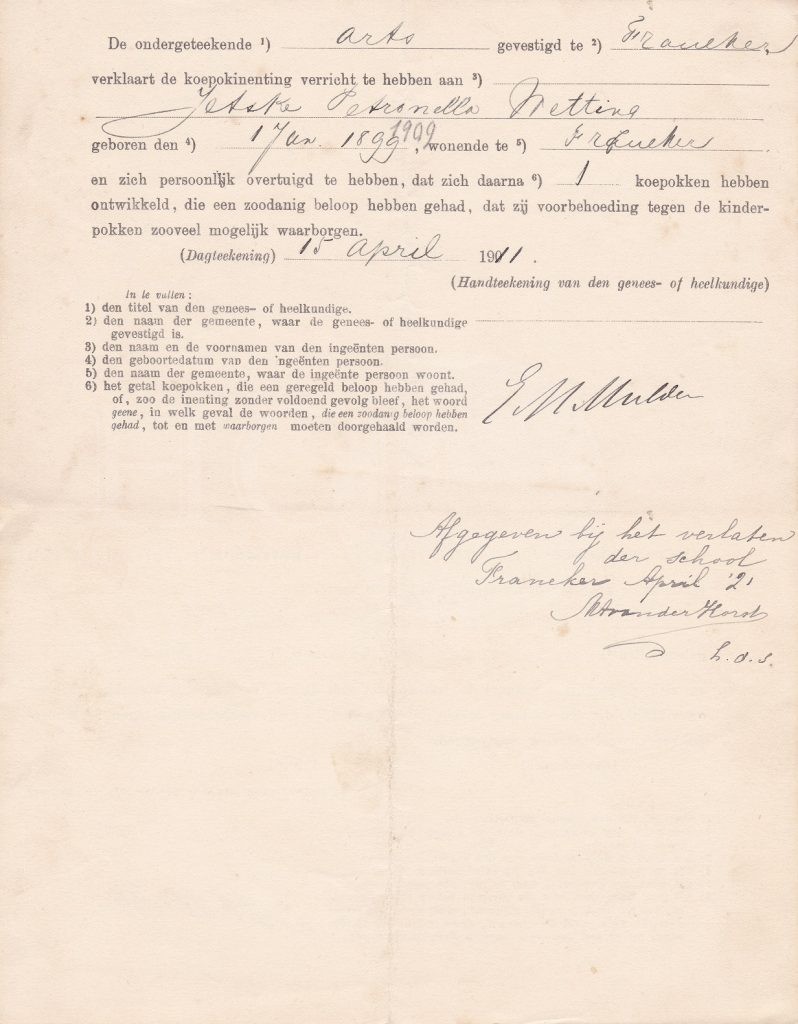 De ondergeteekende ¹) arts gevestigd te ²) Franeker,
verklaart de koepokinenting verricht te hebben aan ³)
Jetske Petronella Wetting
geboren den ⁴) 1 Jan. 1899 1909, wonende te ⁵) Franeker
en zich persoonlijk overtuigd te hebben, dat zich daarna ⁶) 1 koepokken hebben
ontwikkeld, die een zoodanig beloop hebben gehad, dat zij voorbehoeding tegen de kinder-
pokken zooveel mogelijk waarborgen.
(Dagteekening) 15 April 1911.
(Handteekening van den genees- of heelkundige)
In te vullen:
1) den titel van den genees- of heelkundige.
2) den naam der gemeente, waar de genees- of heelkundige
gevestigd is.
3) den naam en de voornamen van den ingeënten persoon.
4) den geboortedatum van den ingeënten persoon.
5) den naam der gemeente, waar de ingeënte persoon woont.
6) het getal koepokken, die een geregeld beloop hebben gehad,
of, zoo de inenting zonder voldoend gevolg bleef, het woord
geene, in welk geval de woorden, die een zoodanig beloop hebben
gehad, tot en met waarborgen moeten doorgehaald worden.
E M Mulder
Afgegeven bij het verlaten
der school
Franeker April '21
van der Horst
h.d.s.